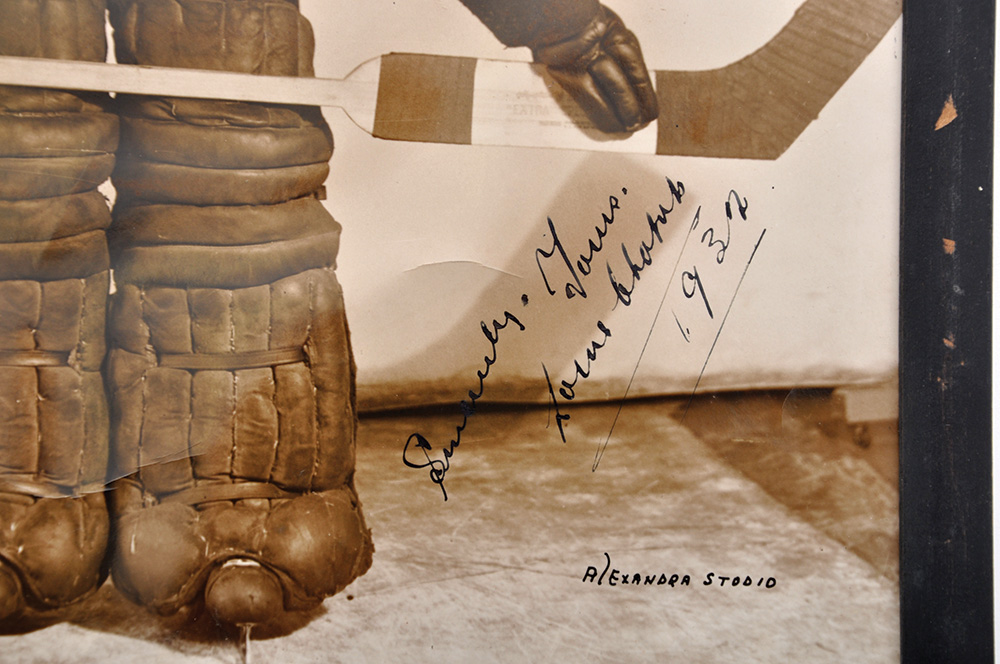 Sincerely. Yours.
Lorne Chabot
1932
ALEXANDRA STUDIO